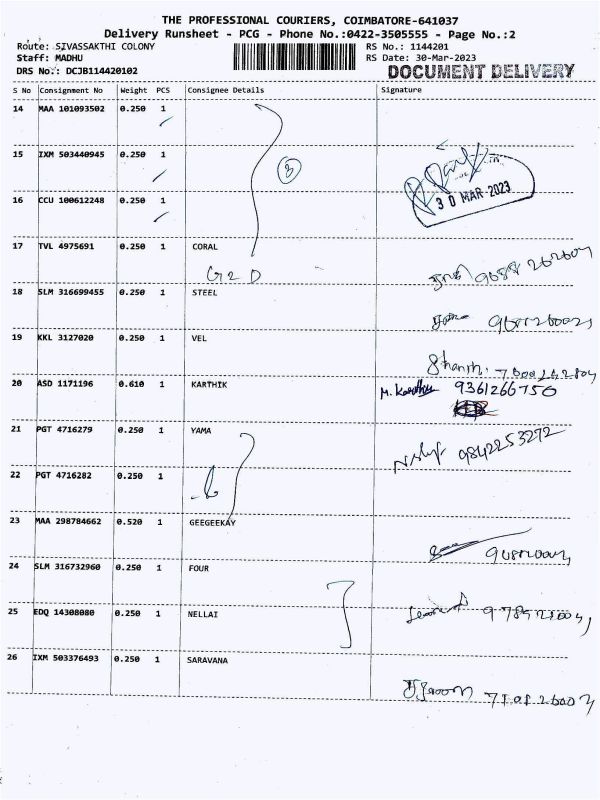 THE PROFESSIONAL COURIERS, COIMBATORE-641037
Delivery Runsheet - PCG - Phone No.:0422-3505555 - Page No.:2
Route: SIVASSAKTHI COLONY RS No.: 1144201
Staff: MADHU RS Date: 30-Mar-2023
DRS No.: DCJB114420102 DOCUMENT DELIVERY
S No Consignment No Weight PCS Consignee Details Signature
14 MAA 101093502 0.250 1
15 IXM 503440945 0.250 1
3
30 MAR 2023
16 CCU 100612248 0.250 1
17 TVL 4975691 0.250 1 CORAL
G2D
18 SLM 316699455 0.250 1 STEEL
19 KKL 3127020 0.250 1 VEL
20 ASD 1171196 0.610 1 KARTHIK M. Karthik 9361266750
21 PGT 4716279 0.250 1 YAMA
9842253272
22 PGT 4716282 0.250 1
23 MAA 298784662 0.520 1 GEEGEEKAY
24 SLM 316732960 0.250 1 FOUR
25 EDQ 14308080 0.250 1 NELLAI
26 IXM 503376493 0.250 1 SARAVANA